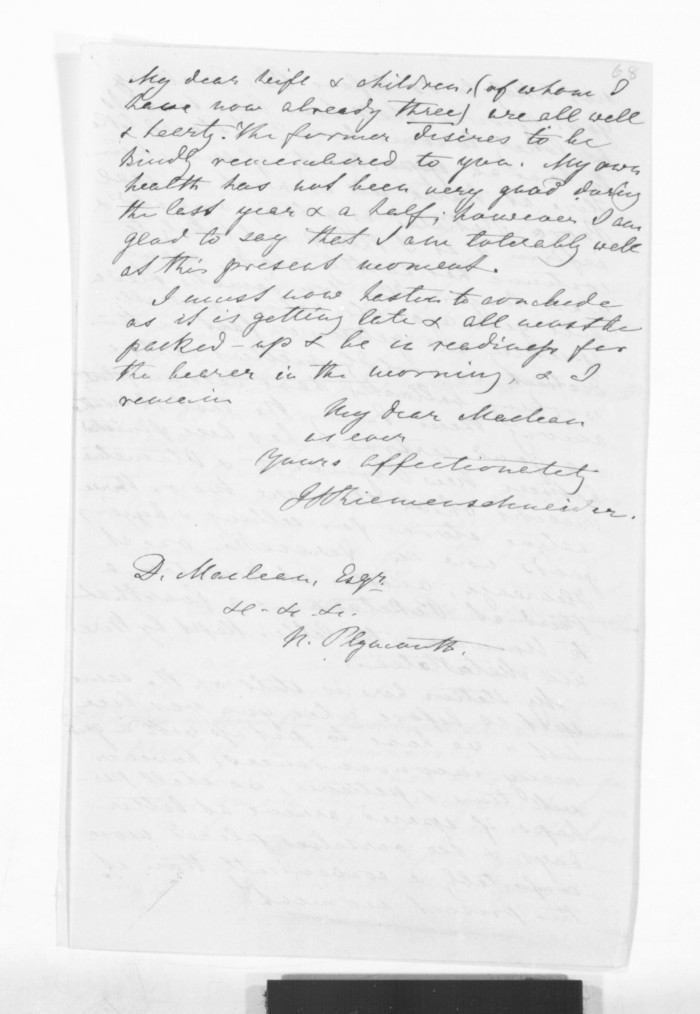 68
My dear wife & children, (of whom I
have now already three) are all well
& hearty. The former desires to be
kindly remembered to you. My own
health has not been very good during
the last year & a half; however I am
glad to say that I am tolerably well
at this present moment.
I must now hasten to conclude
as it is getting late & all must be
packed-up & be in readiness for
the bearer in the morning, & I
remain
My dear Maclean
as ever
Yours affectionately
J H Riemenschneider.
D. Maclean, Esqr.
&-&-&.
N. Plymouth.